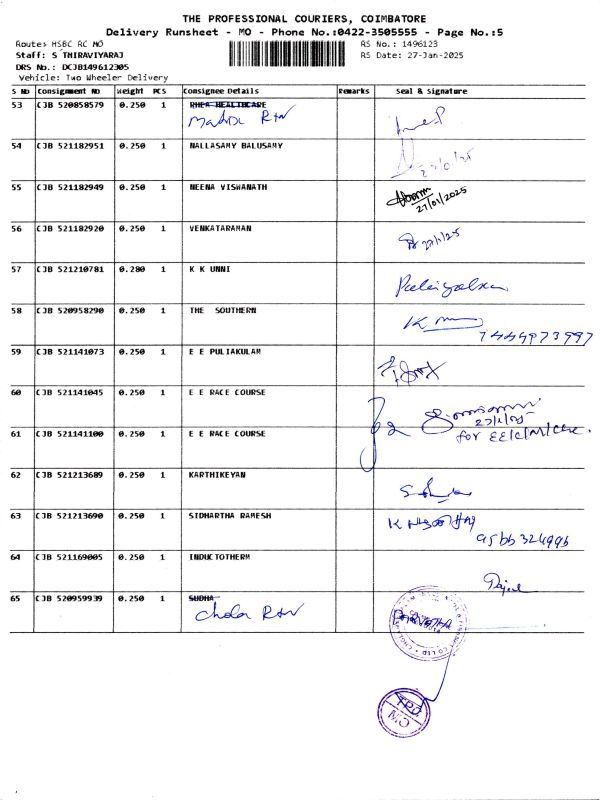 THE PROFESSIONAL COURIERS, COIMBATORE
Delivery Runsheet - MO - Phone No.:0422-3505555 - Page No.:5
Route: HSBC RC MO
RS No.: 1496123
Staff: S THIRAVIYARAJ
RS Date: 27-Jan-2025
DRS No.: DCJB149612305
Vehicle: Two Wheeler Delivery
S No Consignment No Weight PCS Consignee Details Remarks Seal & Signature
53 CJB 520858579 0.250 1 RHEA HEALTHCARE
54 CJB 521182951 0.250 1 NALLASAMY BALUSAMY
27/01/25
55 CJB 521182949 0.250 1 NEENA VISWANATH
27/01/2025
56 CJB 521182920 0.250 1 VENKATARAMAN
27/1/25
57 CJB 521210781 0.280 1 K K UNNI
58 CJB 520958290 0.250 1 THE SOUTHERN
7444973997
59 CJB 521141073 0.250 1 E E PULIAKULAM
60 CJB 521141045 0.250 1 E E RACE COURSE
27/1/25
61 CJB 521141100 0.250 1 E E RACE COURSE
for EE/C/M/CBE.
62 CJB 521213689 0.250 1 KARTHIKEYAN
63 CJB 521213690 0.250 1 SIDHARTHA RAMESH
64 CJB 521169005 0.250 1 INDUCTOTHERM
65 CJB 520959939 0.250 1 SUDHA
Chola RTN